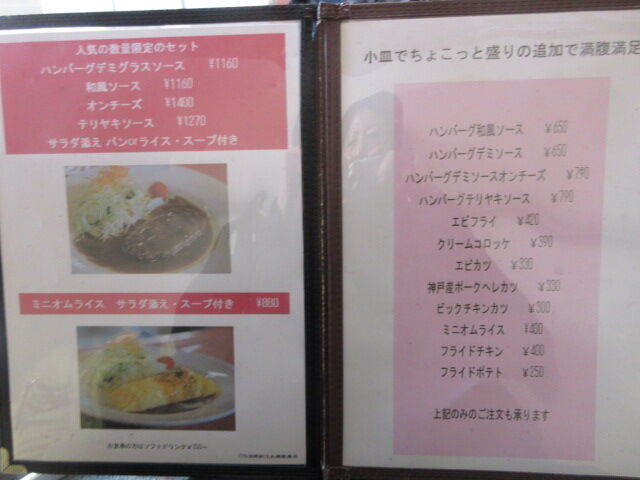 人気の数量限定のセット
ハンバーグデミグラスソース ¥1160
和風ソース ¥1160
オンチーズ ¥1400
テリヤキソース ¥1270
サラダ添え パンorライス・スープ付き
ミニオムライス サラダ添え・スープ付き ¥880
お食事の方はソフトドリンク
小皿でちょこっと盛りの追加で満腹満足
ハンバーグ和風ソース ¥650
ハンバーグデミソース ¥650
ハンバーグデミソースオンチーズ ¥790
ハンバーグテリヤキソース ¥790
エビフライ ¥420
クリームコロッケ ¥390
エビカツ ¥330
神戸産ポークヘレカツ ¥330
ビックチキンカツ ¥300
ミニオムライス ¥400
フライドチキン ¥400
フライドポテト ¥250
上記のみのご注文も承ります